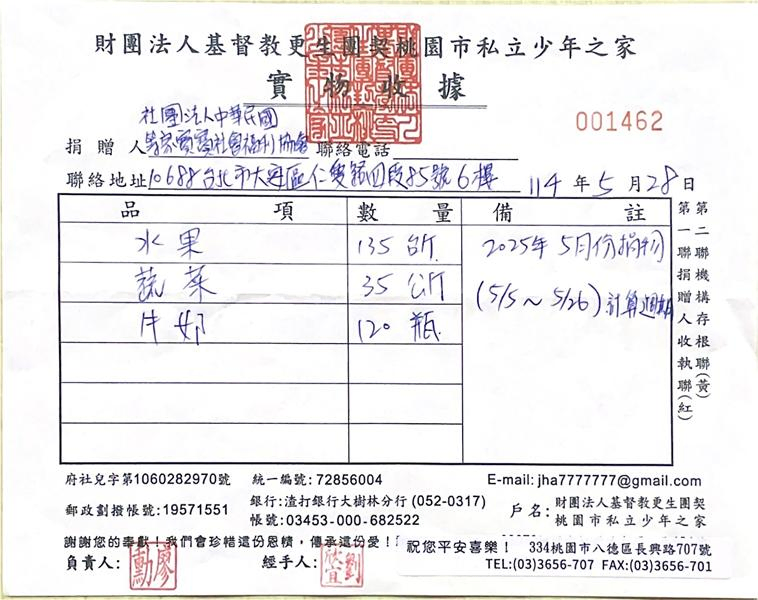 財團法人基督教更生團契桃園市私立少年之家
實物收據
001462
社團法人中華民國
捐贈人 等家寶寶社會福利協會 聯絡電話
聯絡地址 10688台北市大安區仁愛路四段85號6樓 114年5月28日
品項 數量 備註
水果 135台斤 2025年5月份捐物
蔬菜 35公斤 (5/5~5/26)計算週期
牛奶 120瓶
第一聯捐贈人收執聯(紅)
第二聯機構存根聯(黃)
府社兒字第1060282970號 統一編號:72856004 E-mail: jha7777777@gmail.com
郵政劃撥帳號:19571551 銀行:渣打銀行大樹林分行 (052-0317) 戶名: 財團法人基督教更生團契
帳號:03453-000-682522 桃園市私立少年之家
謝謝您的奉獻!我們會珍惜這份恩情,傳承這份愛!
祝您平安喜樂! 334桃園市八德區長興路707號
負責人: 經手人: TEL:(03)3656-707 FAX:(03)3656-701